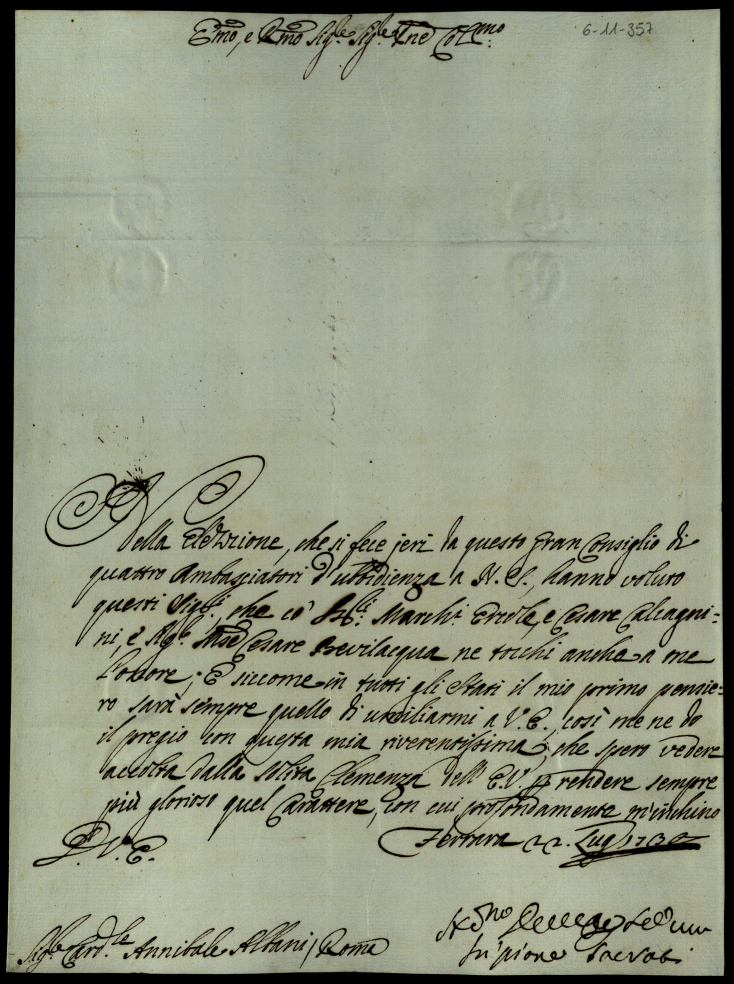 Emo, e Rmo Sig.re Sig.re Pne Col.mo
6-11-357
Nella Elezzione, che si fece jeri da questo Gran Consiglio di
quattro Ambasciatori d'ubbidienza a N. S., hanno voluto
questi Sig.ri, che co' SS.ri March.i Ercole, e Cesare Calcagni=
ni, e Sig.e Cesare Bevilacqua ne tocchi anche a me
l'onore; E siccome in tutti gli Stati il mio primo pensie=
ro sarà sempre quello di umiliarmi a V. E., così me ne do
il pregio con questa mia riverentissima, che spero vedere
accolta dalla solita Clemenza dell' E. V. per rendere sempre
più glorioso quel Carattere, con cui profondamente m'inchino
D. V. E.
Ferrara 22. Lug.o 1730
Sig.re Card.le Annibale Albani / Roma
Scipione Sacrati